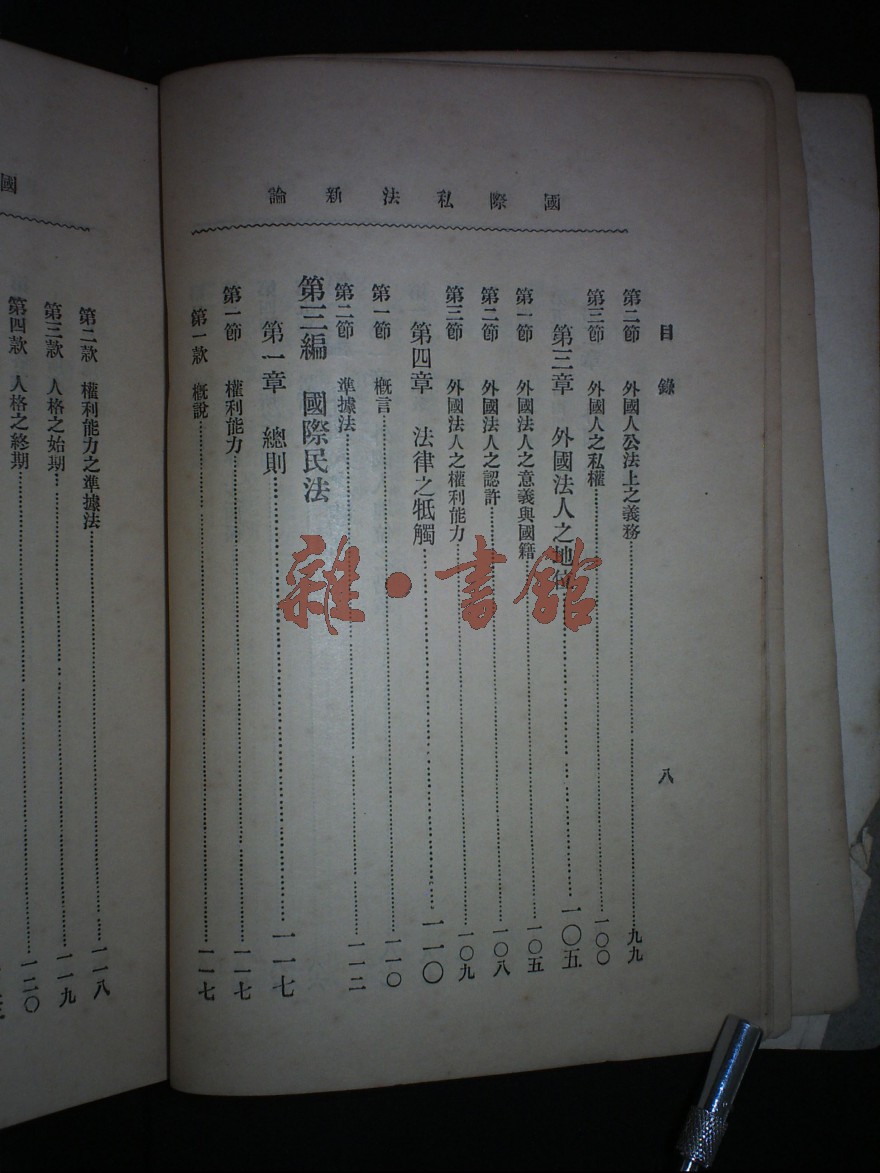 國際私法新論
目錄　八
第二節　外國人公法上之義務……九九
第三節　外國人之私權……一〇〇
第三章　外國法人之地位……一〇五
第一節　外國法人之意義與國籍……一〇五
第二節　外國法人之認許……一〇八
第三節　外國法人之權利能力……一〇九
第四章　法律之牴觸……一一〇
第一節　概言……一一〇
第二節　準據法……一一二
第三編　國際民法
第一章　總則……一一七
第一節　權利能力……一一七
第一款　概說……一一七
國
第二款　權利能力之準據法……一一八
第三款　人格之始期……一一九
第四款　人格之終期……一二〇
雜·書館